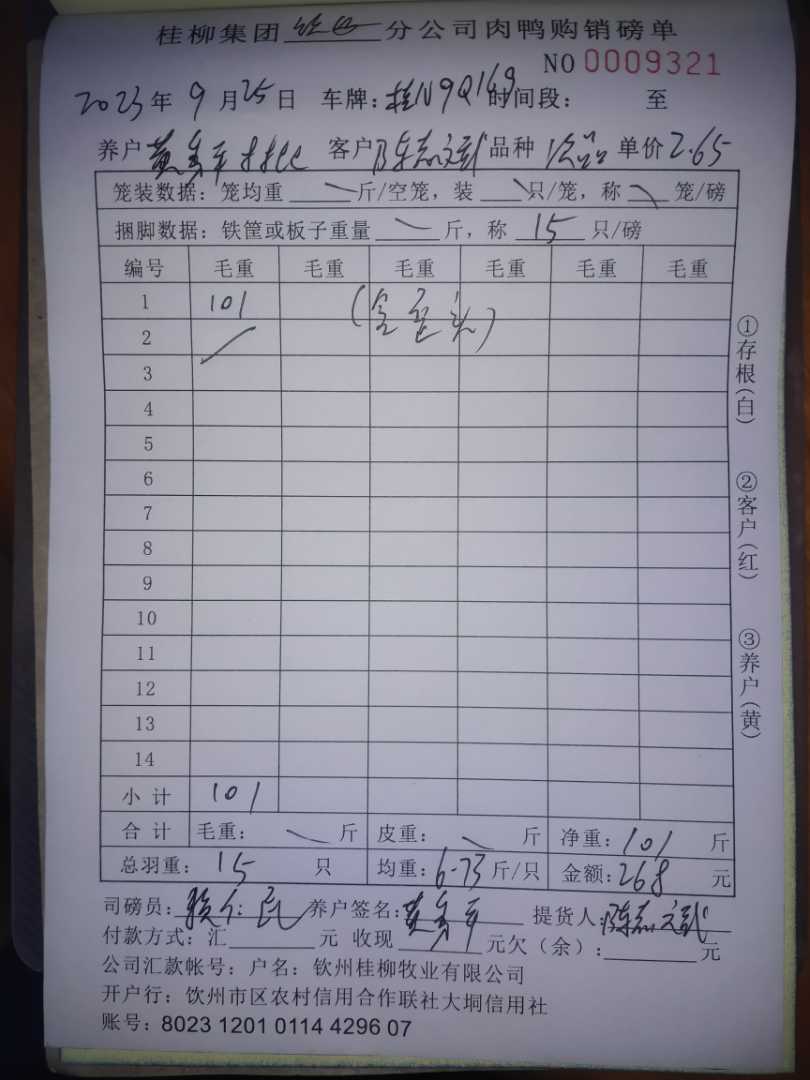 桂柳集团 分公司肉鸭购销磅单
NO 0009321
2023年 9月25日 车牌：桂N9Q169 时间段： 至
养户 黄秀平 客户 陈志文武 品种 次品 单价 2.65
笼装数据：笼均重 斤/空笼，装 只/笼，称 笼/磅
捆脚数据：铁筐或板子重量 斤，称 15 只/磅
编号 毛重 毛重 毛重 毛重 毛重 毛重
1 101
2
3
4
5
6
7
8
9
10
11
12
13
14
小计 101
合计 毛重： 斤 皮重： 斤 净重：101 斤
总羽重：15 只 均重：6-73 斤/只 金额：268 元
①存根（白）
②客户（红）
③养户（黄）
司磅员： 养户签名：黄秀平 提货人：陈志文武
付款方式：汇 元 收现 元欠（余）： 元
公司汇款帐号：户名：钦州桂柳牧业有限公司
开户行：钦州市区农村信用合作联社大垌信用社
账号：8023 1201 0114 4296 07